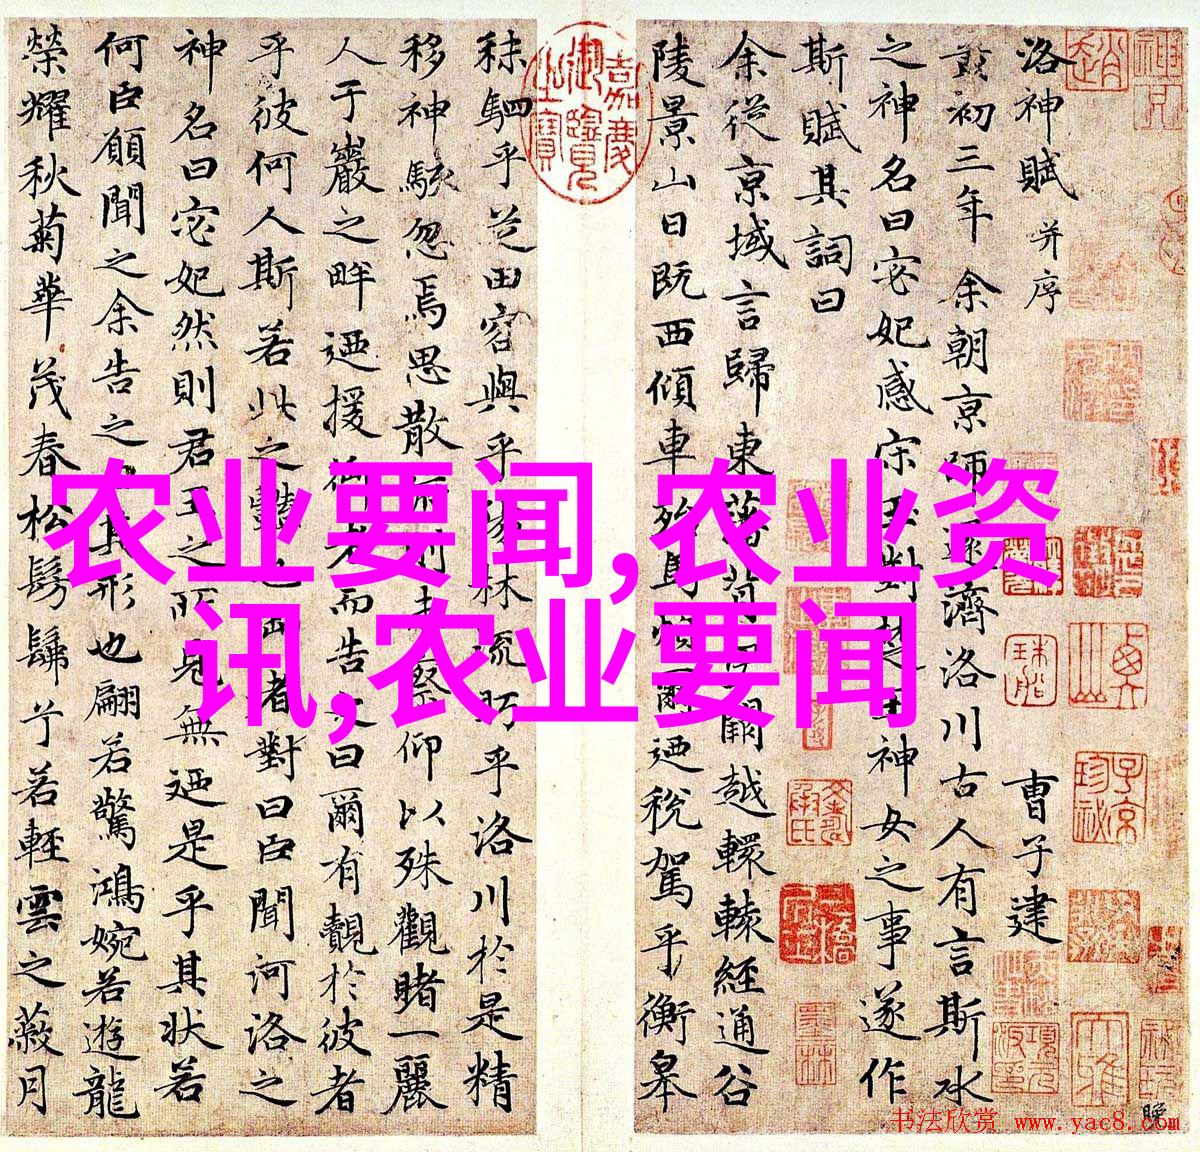 洛神賦 并序 曹子建
初三年余朝京師還濟洛川古人有言斯水
之神名曰宓妃感宋玉對楚王神女之事遂作
斯賦其詞曰
余從京域言歸東藩背闕越轘轅經通谷
陵景山日既西傾車殆馬煩爾迺稅駕乎衡皋
秣駟乎芝田容與乎陽林流眄乎洛川於是精
移神駭忽焉思散則未察仰以殊觀睹一麗
人于巖之畔迺援御者而告之曰爾有覿於彼者
乎彼何人斯若此之豔也者對曰臣聞河洛之
神名曰宓妃然則君王之所見無迺是乎其狀若
何臣願聞之余告之其形也翩若驚鴻婉若遊龍
榮耀秋菊華茂春松髣髴兮若輕雲之蔽月
嘉慶御覽之寶
农业要闻,农业资
讯,农业要闻
书法欣赏 www.yac8.com